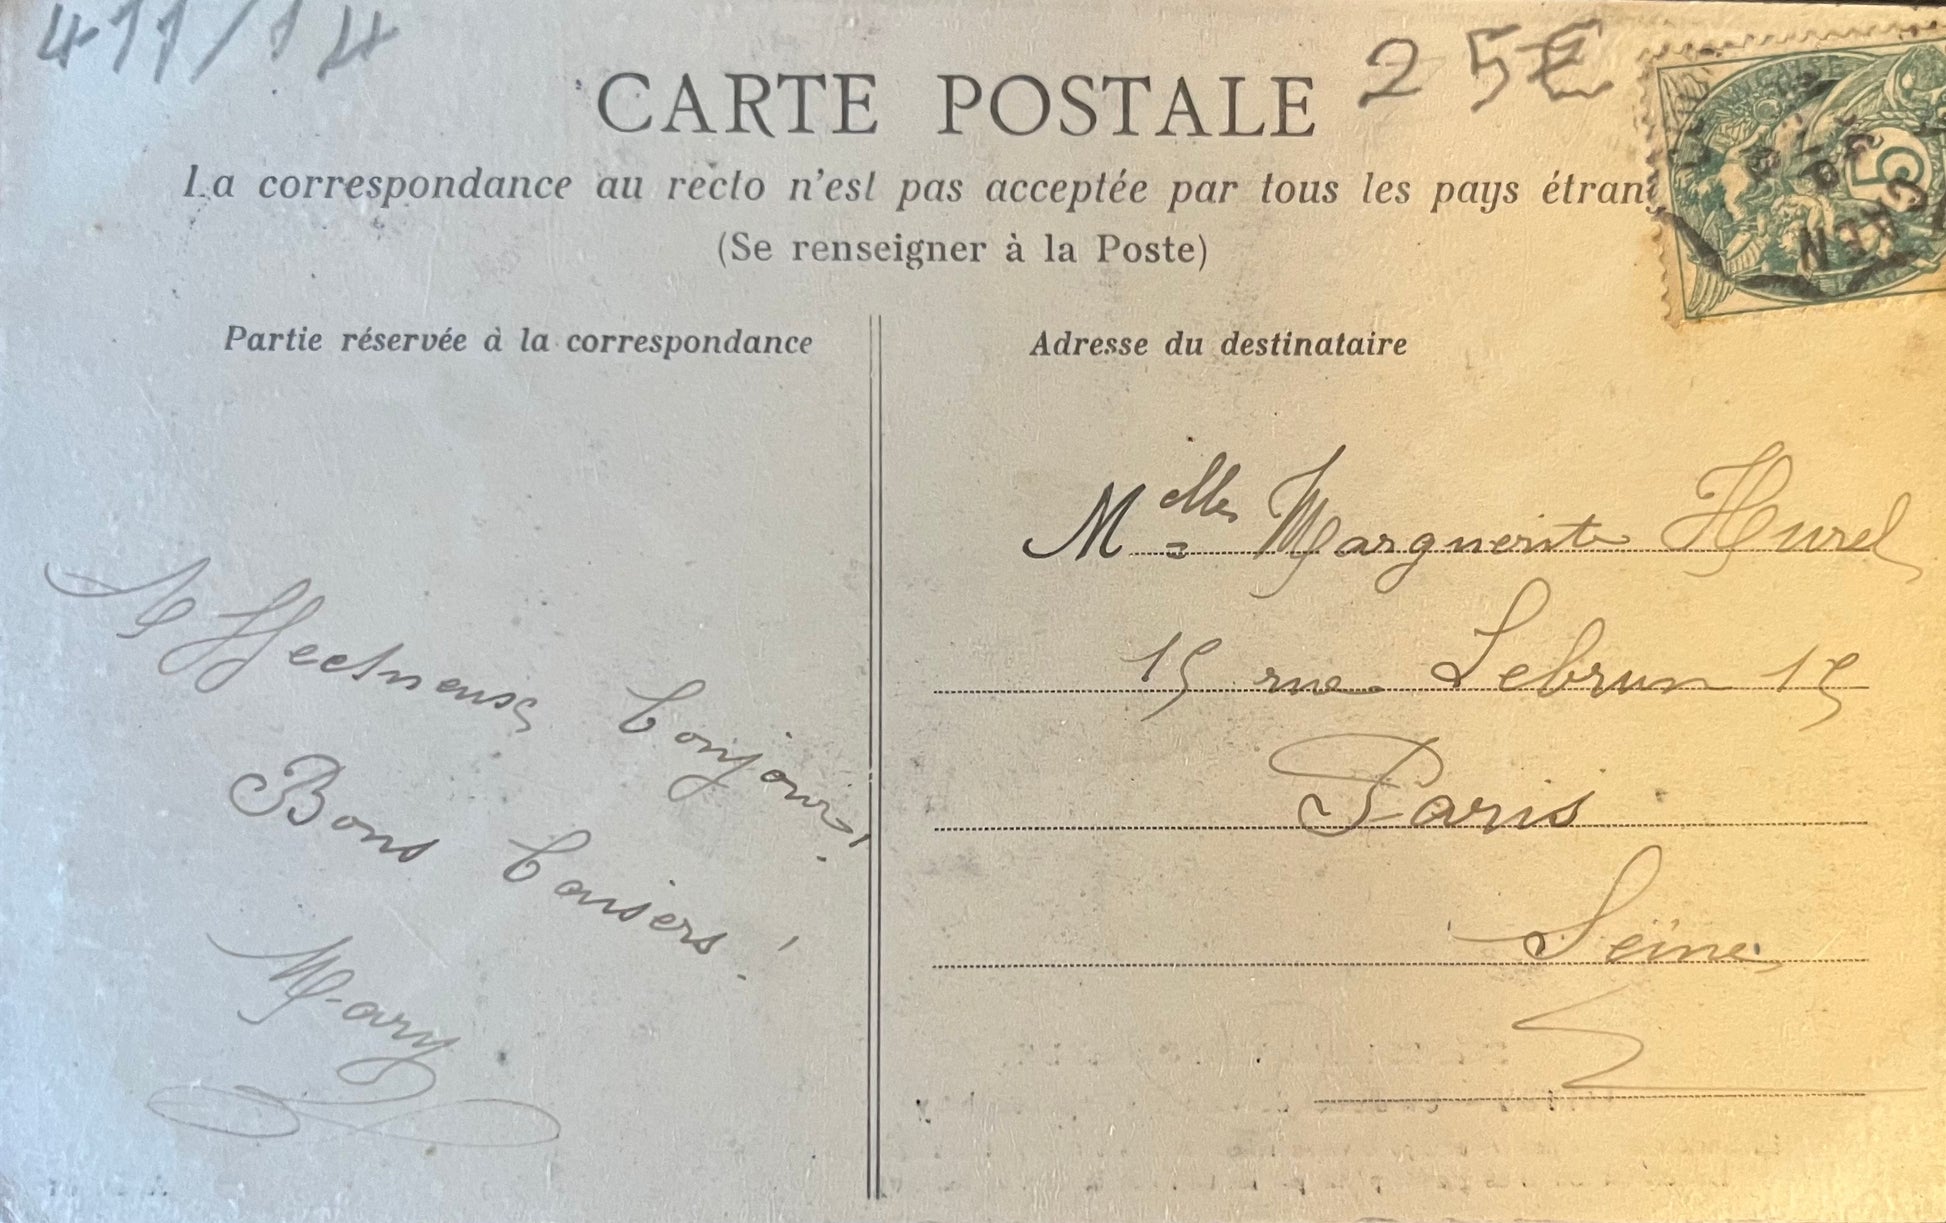 411/14
25€
CARTE POSTALE
La correspondance au recto n'est pas acceptée par tous les pays étran
(Se renseigner à la Poste)
5
CAEN
Partie réservée à la correspondance
Adresse du destinataire
Affectueuse bonjour!
Bons baisers!
Mary
Melles Marguerite Hurel
15 rue Lebrun 15
Paris
Seine